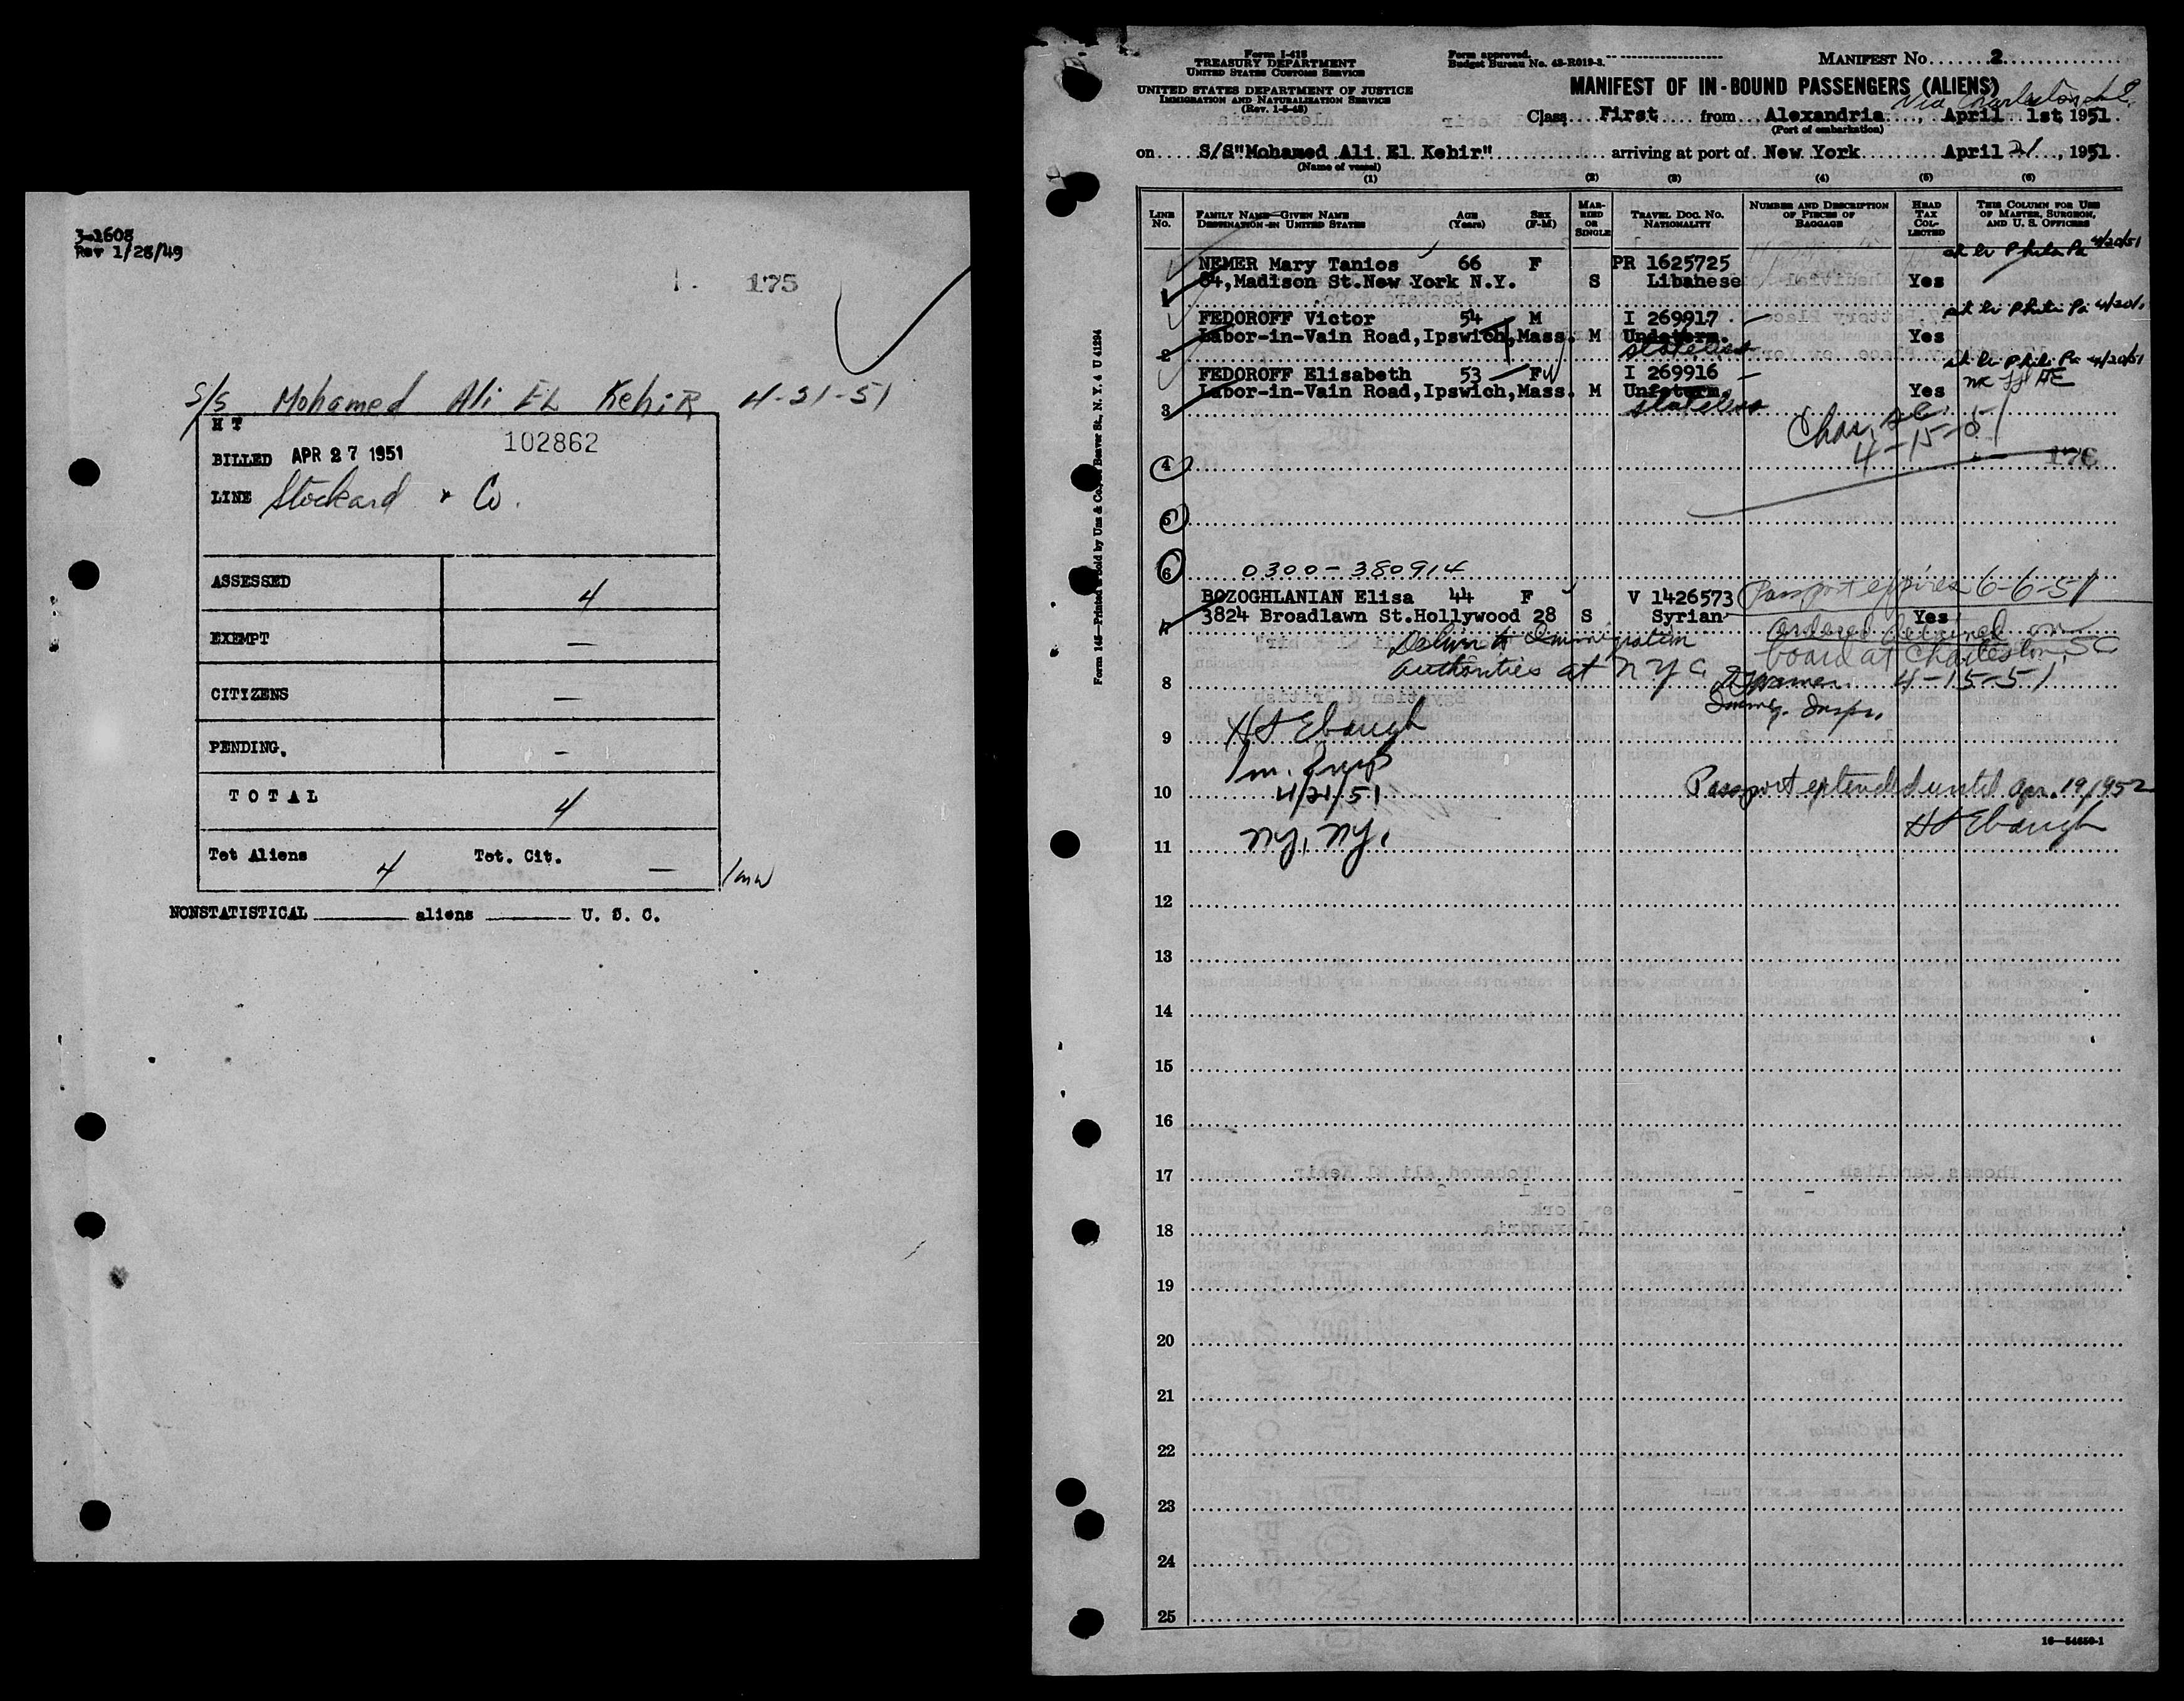 3-1608
Rev 1/28/49
175
S/S Mohamed Ali EL KehiR 4-21-51
H T
BILLED APR 27 1951 102862
LINE Stockard & Co.
ASSESSED 4
EXEMPT —
CITIZENS —
PENDING. —
TOTAL 4
Tot Aliens 4 Tot. Cit. —
NONSTATISTICAL aliens U. S. C.
Form I-415
TREASURY DEPARTMENT
UNITED STATES CUSTOMS SERVICE
UNITED STATES DEPARTMENT OF JUSTICE
IMMIGRATION AND NATURALIZATION SERVICE
(Rev. 1-5-48)
Form approved.
Budget Bureau No. 43-R019-3.
MANIFEST No. 2
MANIFEST OF IN-BOUND PASSENGERS (ALIENS)
Via Charleston S.C.
Class First from Alexandria, April 1st, 1951.
(Port of embarkation)
on S/S"Mohamed Ali El Kehir" arriving at port of New York April 21, 1951
(Name of vessel)
(1) (2) (3) (4) (5) (6)
LINE No.
FAMILY NAME—GIVEN NAME
DESTINATION IN UNITED STATES
AGE (Years)
SEX (F-M)
MARRIED OR SINGLE
TRAVEL DOC. NO.
NATIONALITY
NUMBER AND DESCRIPTION OF PIECES OF BAGGAGE
HEAD TAX COLLECTED
THIS COLUMN FOR USE OF MASTER, SURGEON, AND U. S. OFFICERS
Phila Pa 4/20/51
NEMER Mary Tanios 66 F PR 1625725
64,Madison St.New York N.Y. S Libanese Yes
1
Phila Pa 4/20/51
FEDOROFF Victor 54 M I 269917
Labor-in-Vain Road,Ipswich,Mass. M Undeterm. Yes
2 stateless
Phila Pa 4/20/51
FEDOROFF Elisabeth 53 F I 269916
Labor-in-Vain Road,Ipswich,Mass. M Unfeterm. Yes
3 stateless
Chas. S.C.
4-15-51
4
176
5
6 0300-380914
BOZOGHLANIAN Elisa 44 F V 1426573 Passport expires 6-6-51
3824 Broadlawn St.Hollywood 28 S Syrian Yes
7
ordered detained on
board at Charleston, SC
4-15-51
Deliver to Immigration
authorities at N Y C
Immig. Inspr.
8
9 H S Ebaugh
Im. Insp
10 4/21/51 Passport extended until Apr. 19/1952
H S Ebaugh
11 NY, NY.
12
13
14
15
16
17
18
19
20
21
22
23
24
25
16—54650-1